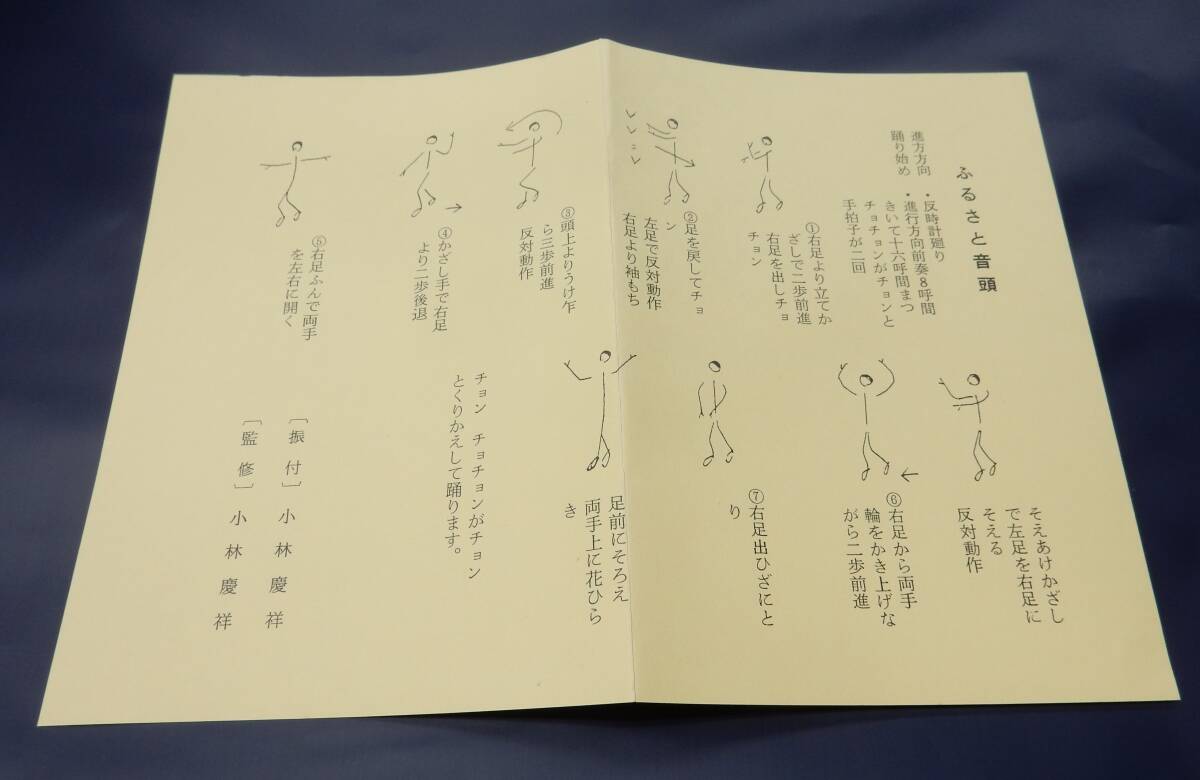 ふるさと音頭
進方方向
・反時計廻り
踊り始め
・進行方向前奏8呼間
きいて十六呼間まつ
チョチョンがチョンと
手拍子が二回
①右足より立てか
ざしで二歩前進
右足を出しチョ
チョン
②足を戻してチョ
ン
左足で反対動作
右足より袖もち
③頭上よりうけ乍
ら三歩前進
反対動作
④かざし手で右足
より二歩後退
⑤右足ふんで両手
を左右に開く
そえあけかざし
で左足を右足に
そえる
反対動作
⑥右足から両手
輪をかき上げな
がら二歩前進
⑦右足出ひざにと
り
足前にそろえ
両手上に花ひら
き
チョン チョチョンがチョン
とくりかえして踊ります。
〔振付〕小林慶祥
〔監修〕小林慶祥